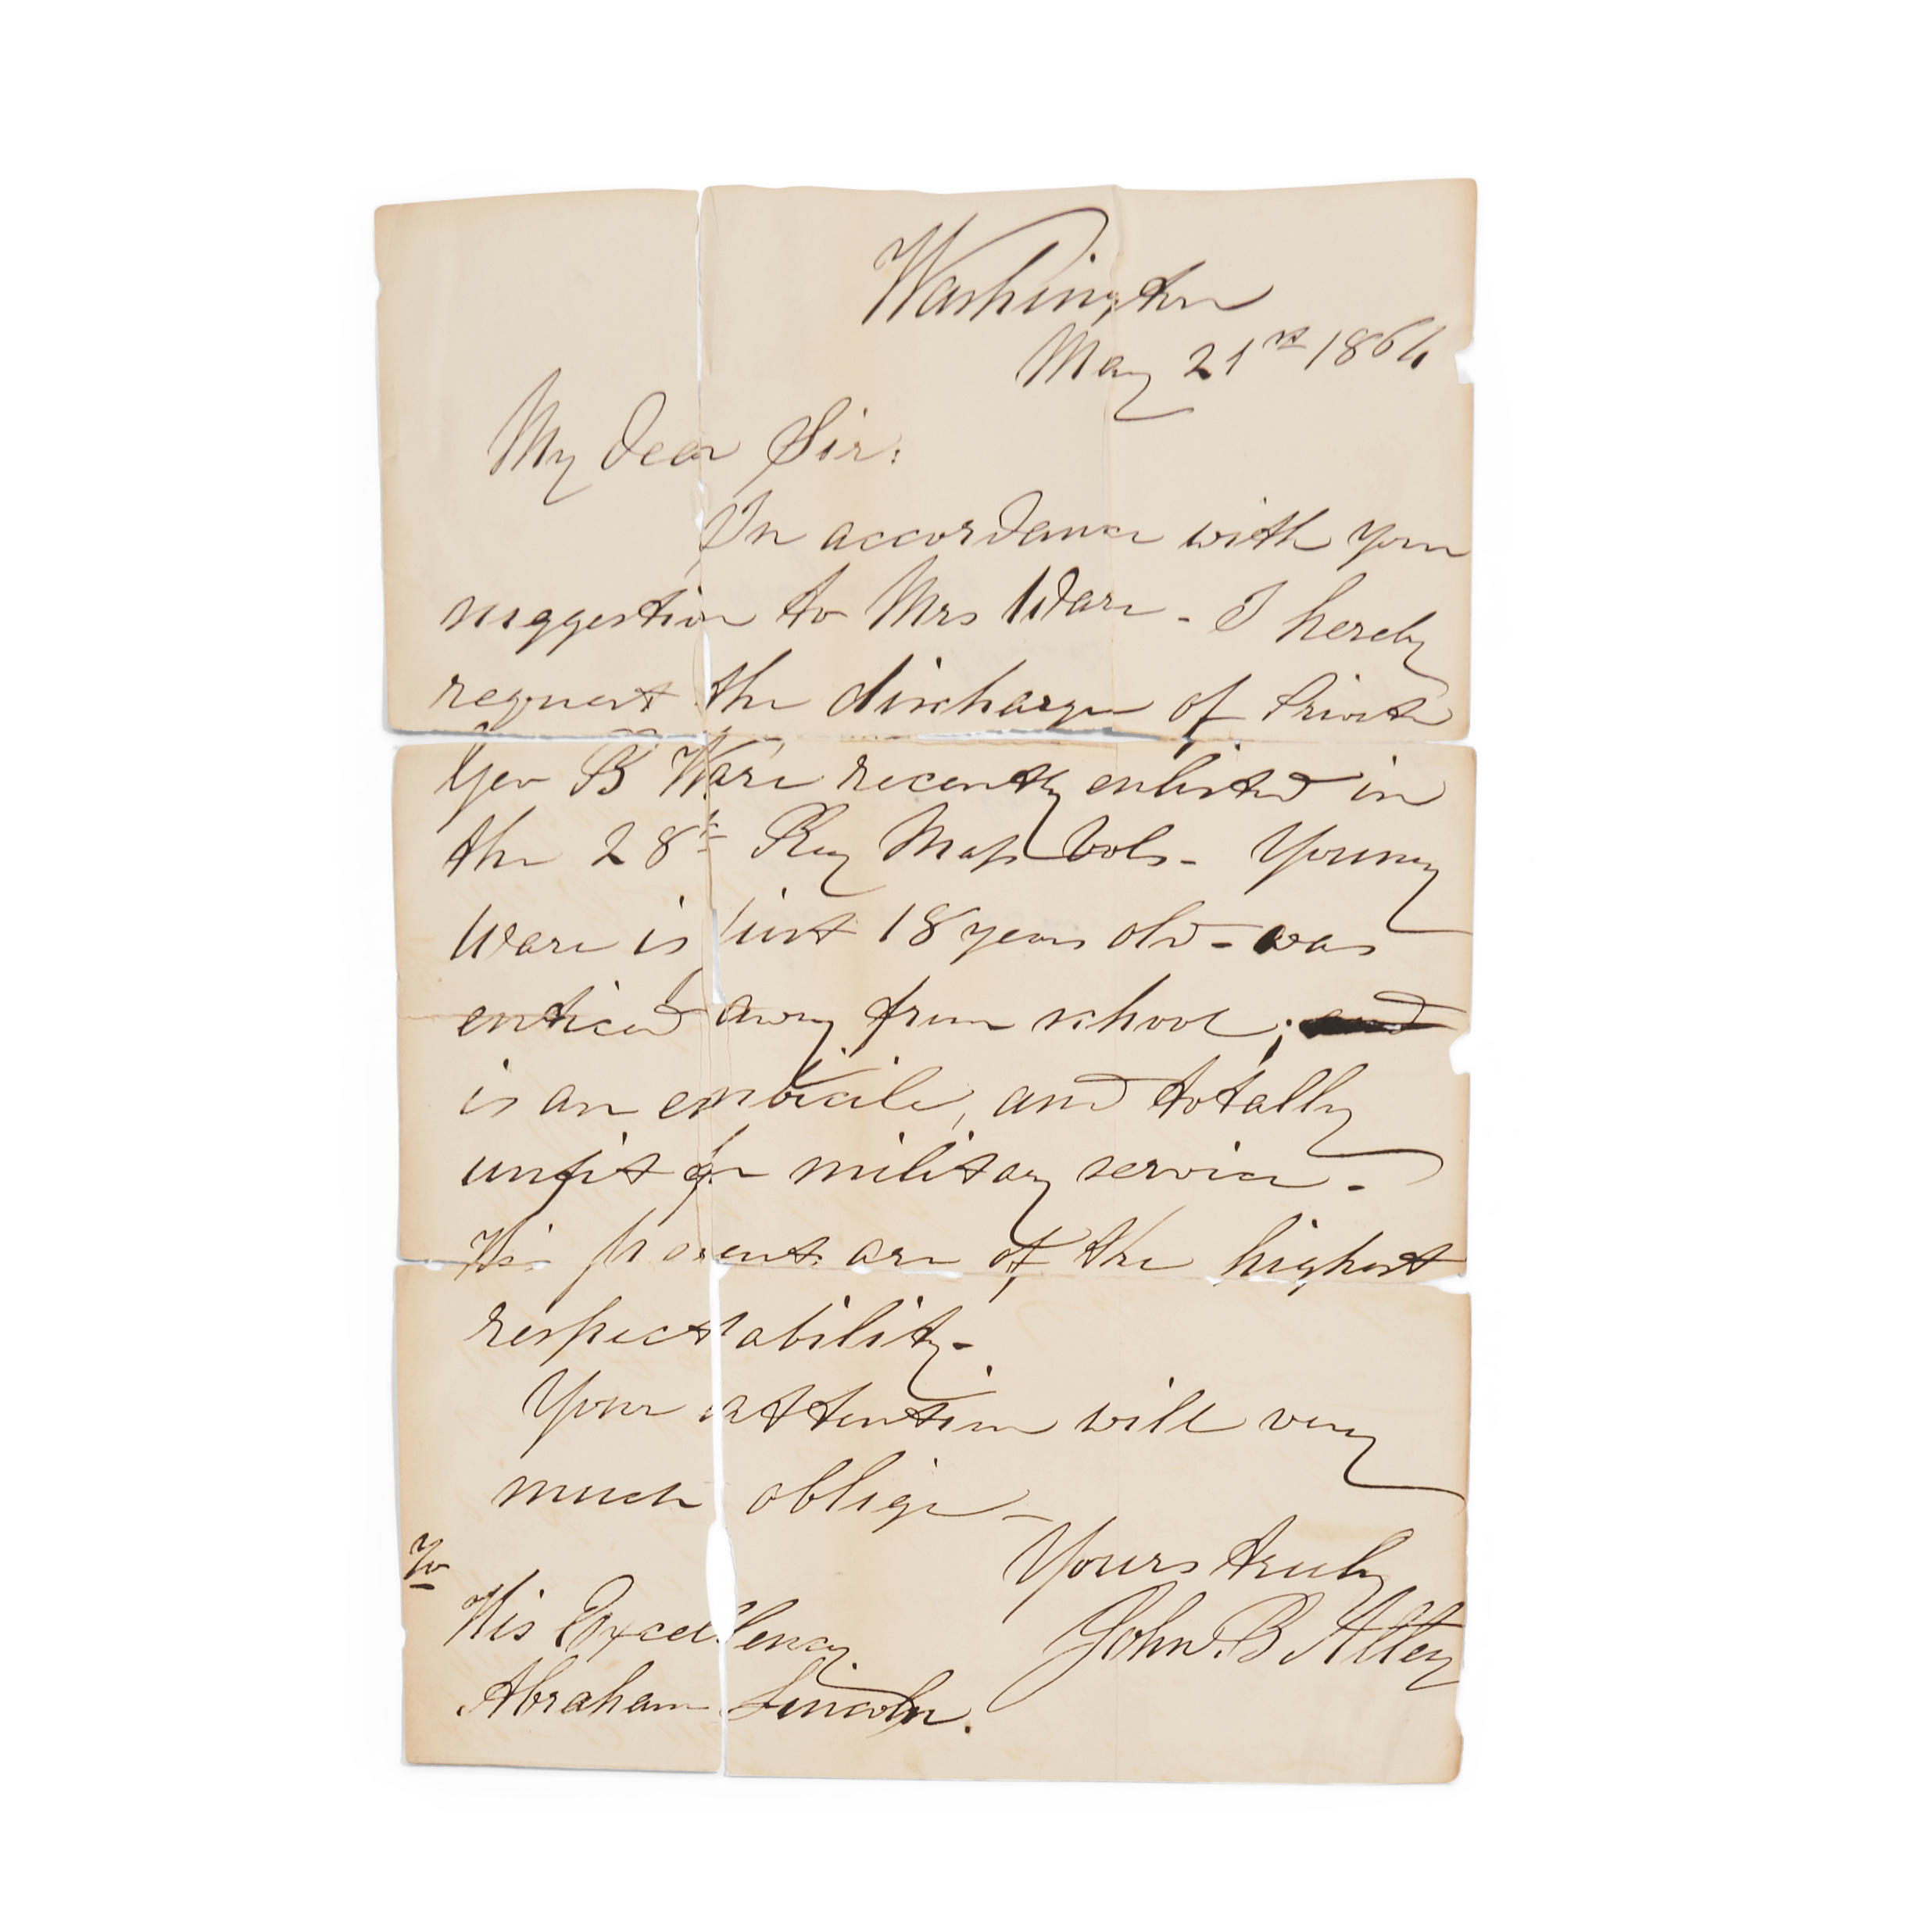 Washington
May 21st 1864
My dear Sir:
In accordance with your
suggestion to Mrs Ware - I hereby
request the discharge of Private
Geo B Ware recently enlisted in
the 28th Reg Mass Vols - Young
Ware is just 18 years old - was
enticed away from school; and
is an embicile, and totally
unfit for military service -
His parents are of the highest
respectability -
Your attention will very
much oblige -
Yours truly
John. B Alley
To
His Excellency
Abraham Lincoln.